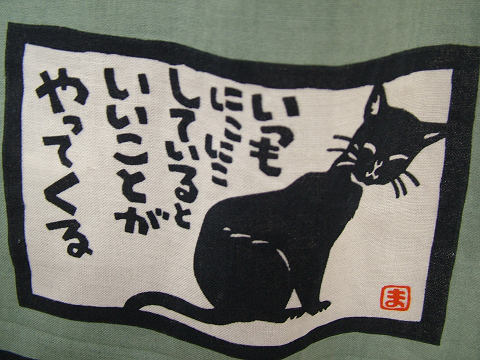 いつも
にこにこ
していると
いいことが
やってくる
ま